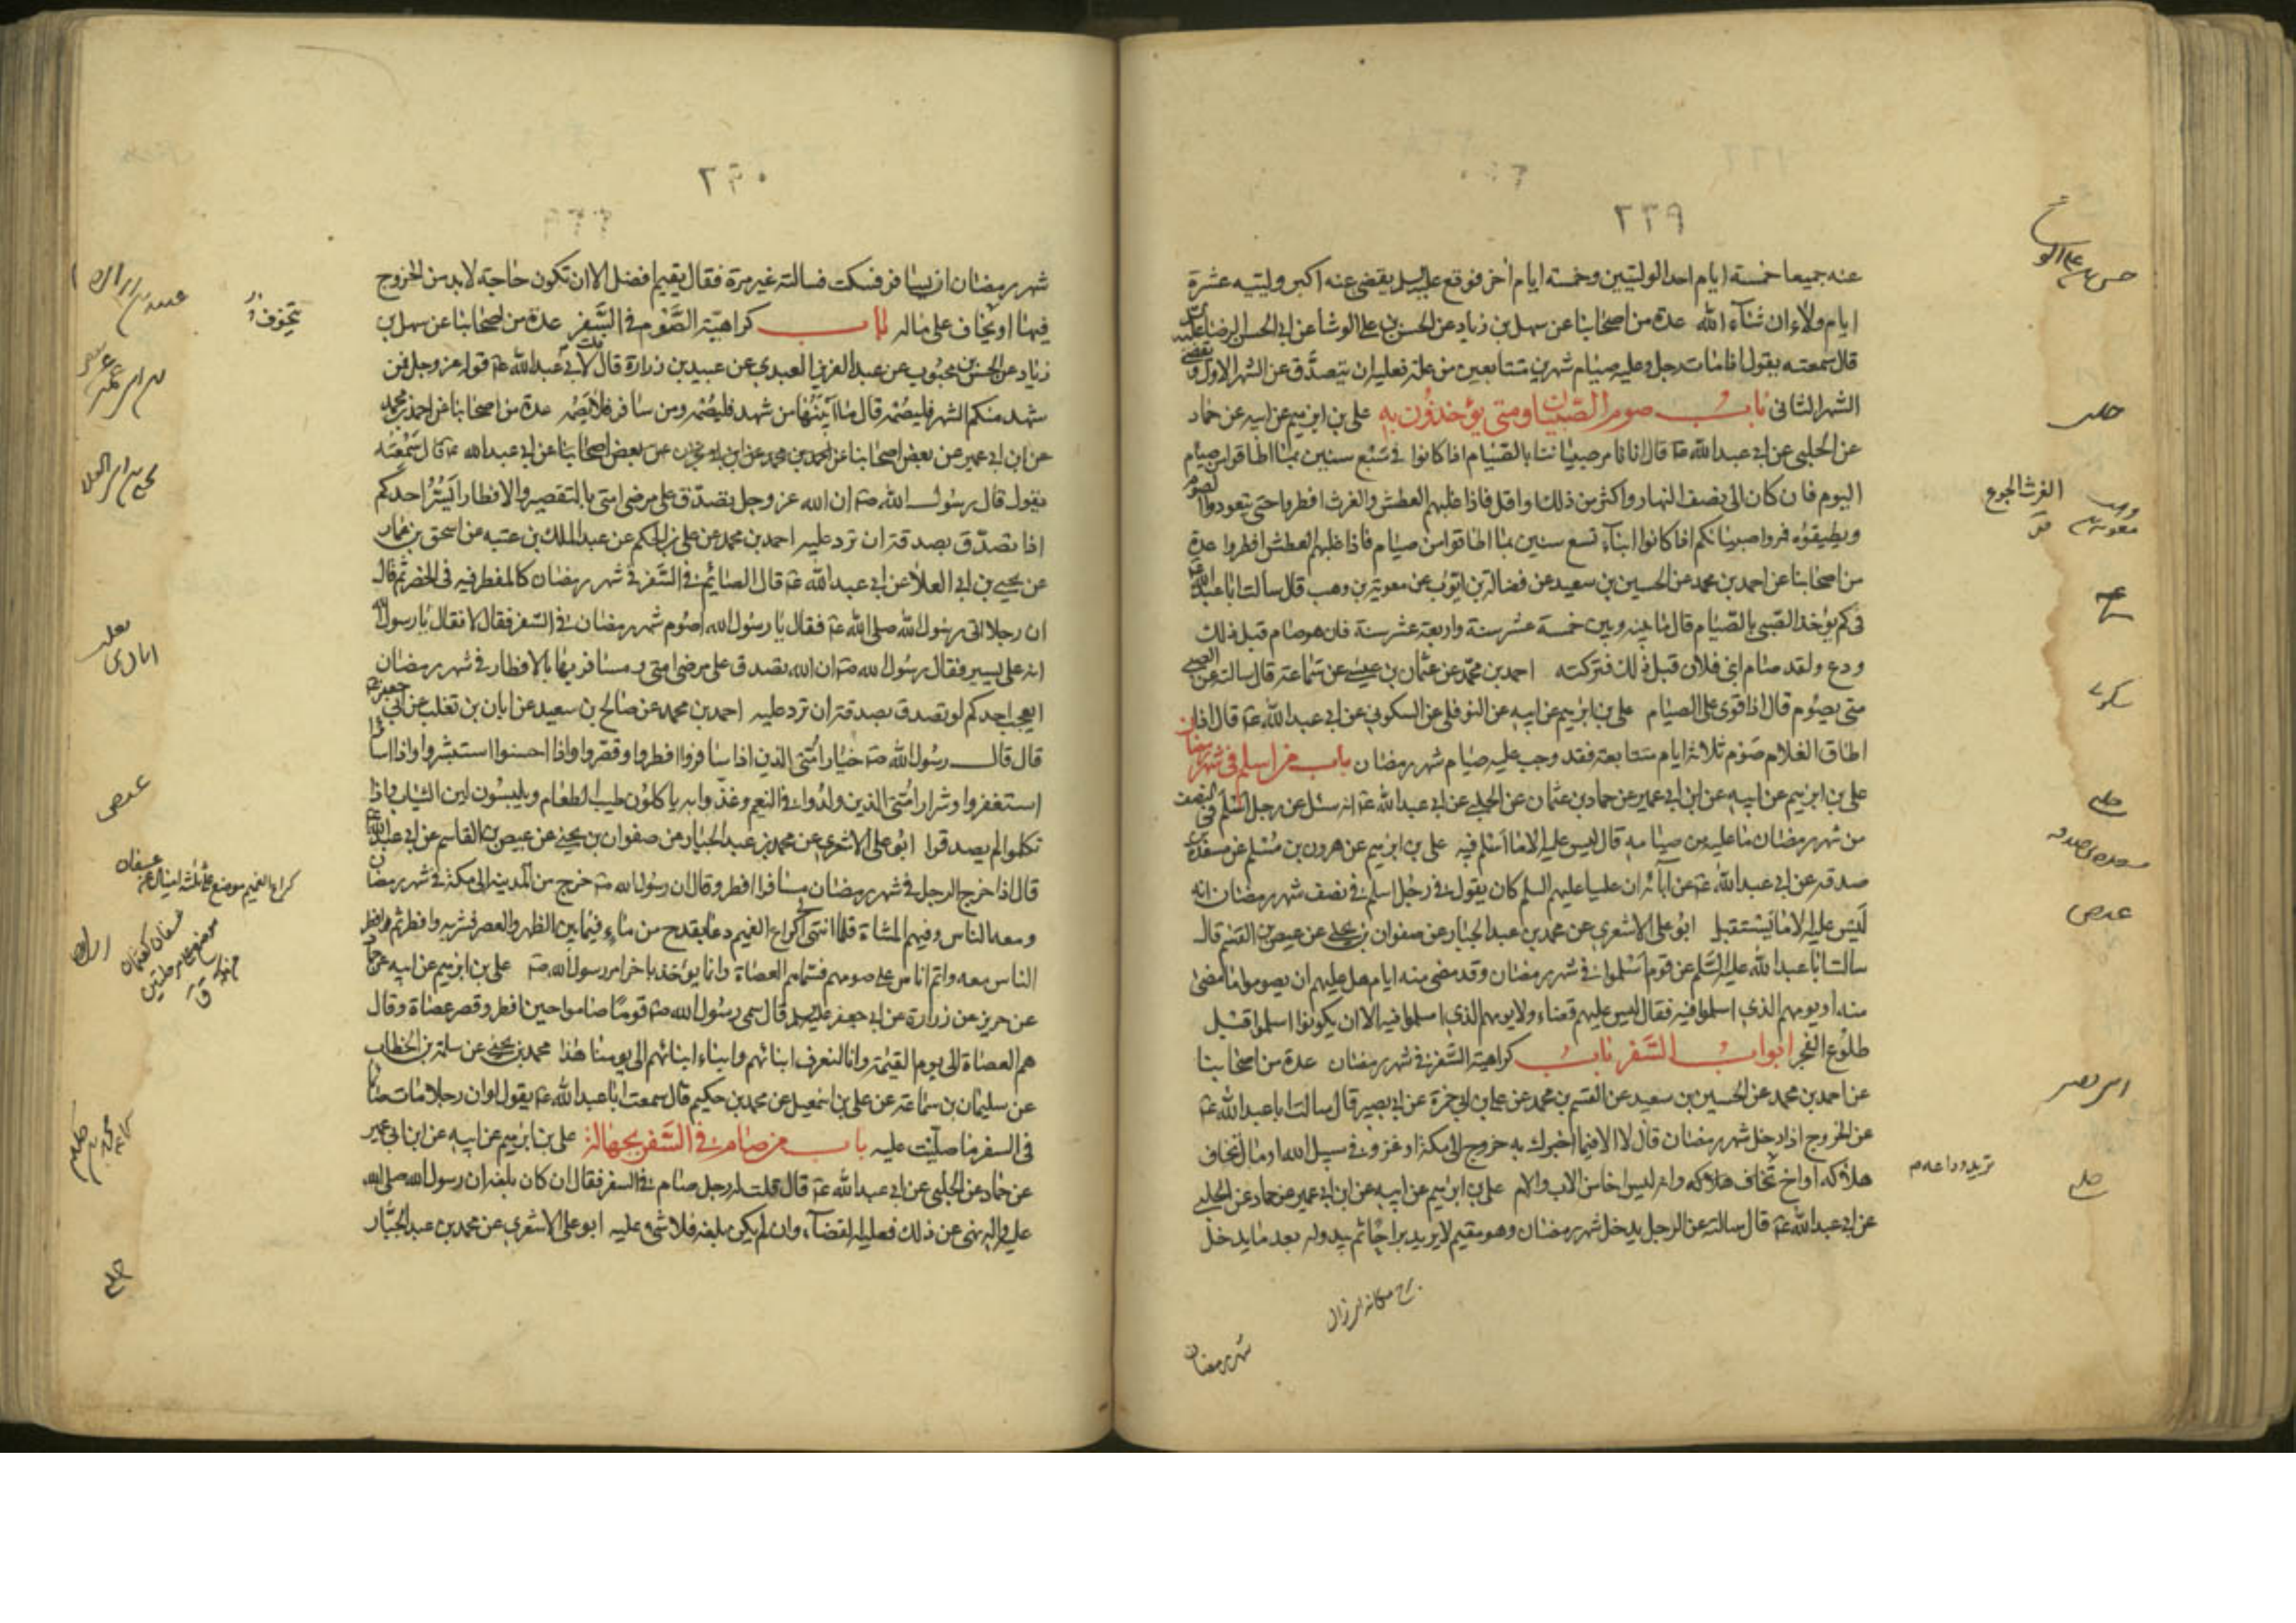 ٢٣٩
عنه جميعا خمسة ايام احد الوليين وخمسة ايام اخر فوقع عليه السلم يقضى عنه اكبر ولييه عشرة
ايام ولاء ان شاء الله عدة من اصحابنا عن سهل بن زياد عن الحسن بن على الوشا عن ابى الحسن الرضا عليه
قال سمعته يقول اذا مات رجل وعليه صيام شهرين متتابعين من علة فعليه ان يتصدق عن الشهر الاول ويقضى
الشهر الثانى باب صوم الصبيان ومتى يؤخذون به على بن ابرهيم عن ابيه عن حماد
عن الحلبى عن ابى عبدالله ع قال انا نامر صبياننا بالصيام اذا كانوا فى سبع سنين بما اطاقوا من صيام
اليوم فان كان الى نصف النهار واكثر من ذلك او اقل فاذا غلبهم العطش والغرث افطروا حتى يتعودوا الصوم
ويطيقوه فمروا صبيانكم اذا كانوا ابناء تسع سنين بما اطاقوا من صيام فاذا غلبهم العطش افطروا عدة
من اصحابنا عن احمد بن محمد عن الحسين بن سعيد عن فضالة بن ايوب عن معوية بن وهب قال سالت ابا عبدالله ع
فى كم يؤخذ الصبى بالصيام قال ما بينه وبين خمسة عشر سنة واربعة عشر سنة فان هو صام قبل ذلك
ودع ولقد صام ابنى فلان قبل ذلك فتركته احمد بن محمد عن عثمان بن عيسى عن سماعة قال سالته عن الصبى
متى يصوم قال اذا قوى على الصيام على بن ابرهيم عن ابيه عن النوفلى عن السكونى عن ابى عبدالله ع قال اذا
اطاق الغلام صوم ثلاثة ايام متتابعة فقد وجب عليه صيام شهر رمضان باب من اسلم فى شهر رمضان
على بن ابرهيم عن ابيه عن ابن ابى عمير عن حماد بن عثمان عن الحلبى عن ابى عبدالله ع انه سئل عن رجل اسلم فى النصف
من شهر رمضان ما عليه من صيامه قال ليس عليه الا ما اسلم فيه على بن ابرهيم عن هرون بن مسلم عن مسعدة بن
صدقه عن ابى عبدالله ع عن آبائه ان عليا عليه السلم كان يقول فى رجل اسلم فى نصف شهر رمضان انه
ليس عليه الا ما يستقبل ابو على الاشعرى عن محمد بن عبد الجبار عن صفوان بن يحيى عن عيص بن القسم قال
سالت ابا عبدالله عليه السلم عن قوم اسلموا فى شهر رمضان وقد مضى منه ايام هل عليهم ان يصوموا ما مضى
منه او يومهم الذى اسلموا فيه فقال ليس عليهم قضاء ولا يومهم الذى اسلموا فيه الا ان يكونوا اسلموا قبل
طلوع الفجر ابواب السفر باب كراهية السفر فى شهر رمضان عدة من اصحابنا
عن احمد بن محمد عن الحسين بن سعيد عن القسم بن محمد عن على بن ابى حمزة عن ابى بصير قال سالت ابا عبدالله ع
عن الخروج اذا دخل شهر رمضان قال لا الا فيما اخبرك به خروج الى مكة او غزو فى سبيل الله او مال تخاف
هلاكه او اخ تخاف هلاكه وانه ليس اخا من الاب والام على بن ابرهيم عن ابيه عن ابن ابى عمير عن حماد عن الحلبى
عن ابى عبدالله ع قال سالته عن الرجل يدخل شهر رمضان وهو مقيم لا يريد براحا ثم يبدو له بعد ما يدخل
شهر رمضان
الغرث الجوع
حلبى
ابى بصير
٢٣٠
شهر رمضان ان يسافر فسكت فسالته غير مرة فقال يقيم افضل الا ان تكون حاجة لا بد من الخروج
فيها او يخاف على ماله باب كراهية الصوم فى السفر عدة من اصحابنا عن سهل بن
زياد عن الحسن بن محبوب عن عبد العزيز العبدى عن عبيد بن زرارة قال قلت لابى عبدالله ع قوله عز وجل فمن
شهد منكم الشهر فليصمه قال ما ابينها من شهد فليصمه ومن سافر فلا يصمه عدة من اصحابنا عن احمد بن محمد
عن ابن ابى عمير عن بعض اصحابنا عن ابى عبدالله ع قال سمعته
يقول قال رسول الله ص ان الله عز وجل تصدق على مرضى امتى بالتقصير والافطار ايسر احدكم
اذا تصدق بصدقة ان ترد عليه احمد بن محمد عن على بن الحكم عن عبد الملك بن عتبه عن اسحق بن عمار
عن يحيى بن ابى العلا عن ابى عبدالله ع قال الصائم فى السفر فى شهر رمضان كالمفطر فيه فى الحضر ثم قال
ان رجلا اتى رسول الله صلى الله ع فقال يا رسول الله اصوم شهر رمضان فى السفر فقال لا فقال يا رسول الله
انه على يسير فقال رسول الله ص ان الله تصدق على مرضى امتى ومسافريها بالافطار فى شهر رمضان
ايعجب احدكم لو تصدق بصدقة ان ترد عليه احمد بن محمد عن صالح بن سعيد عن ابان بن تغلب عن ابى جعفر ع
قال قال رسول الله ص خيار امتى الذين اذا سافروا افطروا وقصروا واذا احسنوا استبشروا واذا اساؤا
استغفروا وشرار امتى الذين ولدوا فى النعيم وغذوا به ياكلون طيب الطعام ويلبسون لين الثياب واذا
تكلموا لم يصدقوا ابو على الاشعرى عن محمد بن عبد الجبار عن صفوان بن يحيى عن عيص بن القاسم عن ابى عبدالله ع
قال اذا خرج الرجل فى شهر رمضان مسافرا افطر وقال ان رسول الله ص خرج من المدينه الى مكة فى شهر رمضان
ومعه الناس وفيهم المشاة فلما انتهى الى كراع الغميم دعا بقدح من ماء فيما بين الظهر والعصر فشربه وافطر ثم افطر
الناس معه واتم اناس على صومهم فسماهم العصاة وانما يؤخذ باخر امر رسول الله ص على بن ابرهيم عن ابيه عن حماد
عن حريز عن زرارة عن ابى جعفر عليه السلم قال سمى رسول الله ص قوما صاموا حين افطر وقصر عصاة وقال
هم العصاة الى يوم القيمة وانا لنعرف ابنائهم وابناء ابنائهم الى يومنا هذا محمد بن يحيى عن سلمة بن الخطاب
عن سليمان بن سماعة عن على بن اسمعيل عن محمد بن حكيم قال سمعت ابا عبدالله ع يقول لو ان رجلا مات صائما
فى السفر ما صليت عليه باب من صام فى السفر بجهالة على بن ابرهيم عن ابيه عن ابن ابى عمير
عن حماد عن الحلبى عن ابى عبدالله ع قال قلت له رجل صام فى السفر فقال ان كان بلغه ان رسول الله صلى الله
عليه واله نهى عن ذلك فعليه القضاء وان لم يكن بلغه فلا شىء عليه ابو على الاشعرى عن محمد بن عبد الجبار
يتخوف
يحيى بن ابى العلا